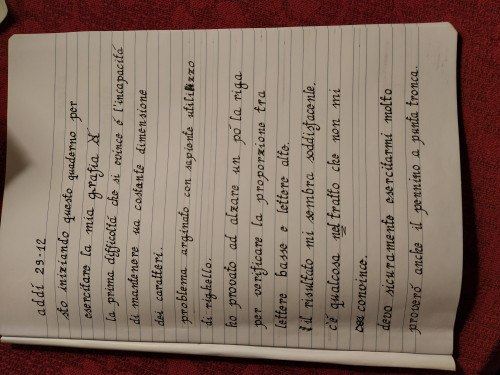 addí 29-12
sto iniziando questo quaderno per
esercitare la mia grafia
la prima difficoltá che si evince é l'incapacitá
di mantenere ua costante dimensione
dei caratteri.
problema arginato con sapiente utilizzo
di righello.
ho provato ad alzare un pó la riga
per verificare la proporzione tra
lettere basse e lettere alte.
il risultato mi sembra soddisfacente.
c'é qualcosa nel tratto che non mi
convince.
devo sicuramente esercitarmi molto
proveró anche il pennino a punta tronca.